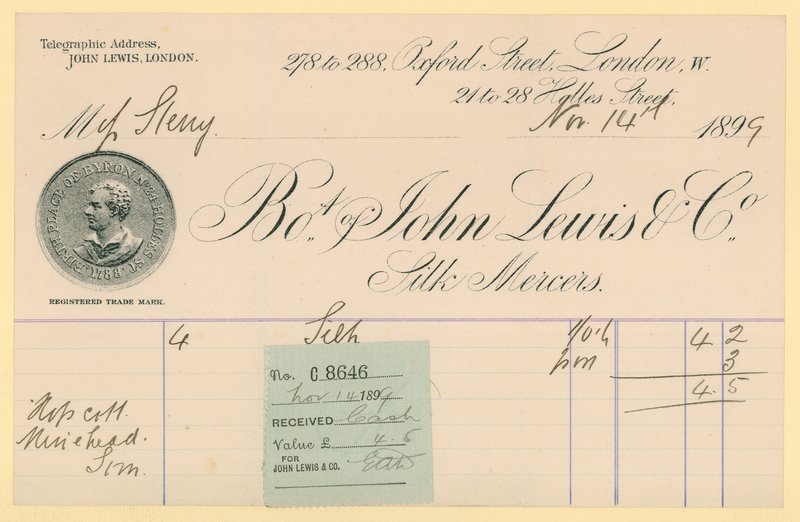 Telegraphic Address,
JOHN LEWIS, LONDON.
278 to 288, Oxford Street, London, W.
21 to 28 Holles Street,
Nov 14th 1899
BIRTH PLACE OF BYRON No 24 HOLLES ST. 1788.
REGISTERED TRADE MARK.
Bot. of John Lewis & Co.
Silk Mercers.
4 Silk 4 2
3
4. 5
No. C 8646
Nov 14 1899
RECEIVED Cash
Value £ 4. 5
FOR
JOHN LEWIS & CO.
Muirhead.